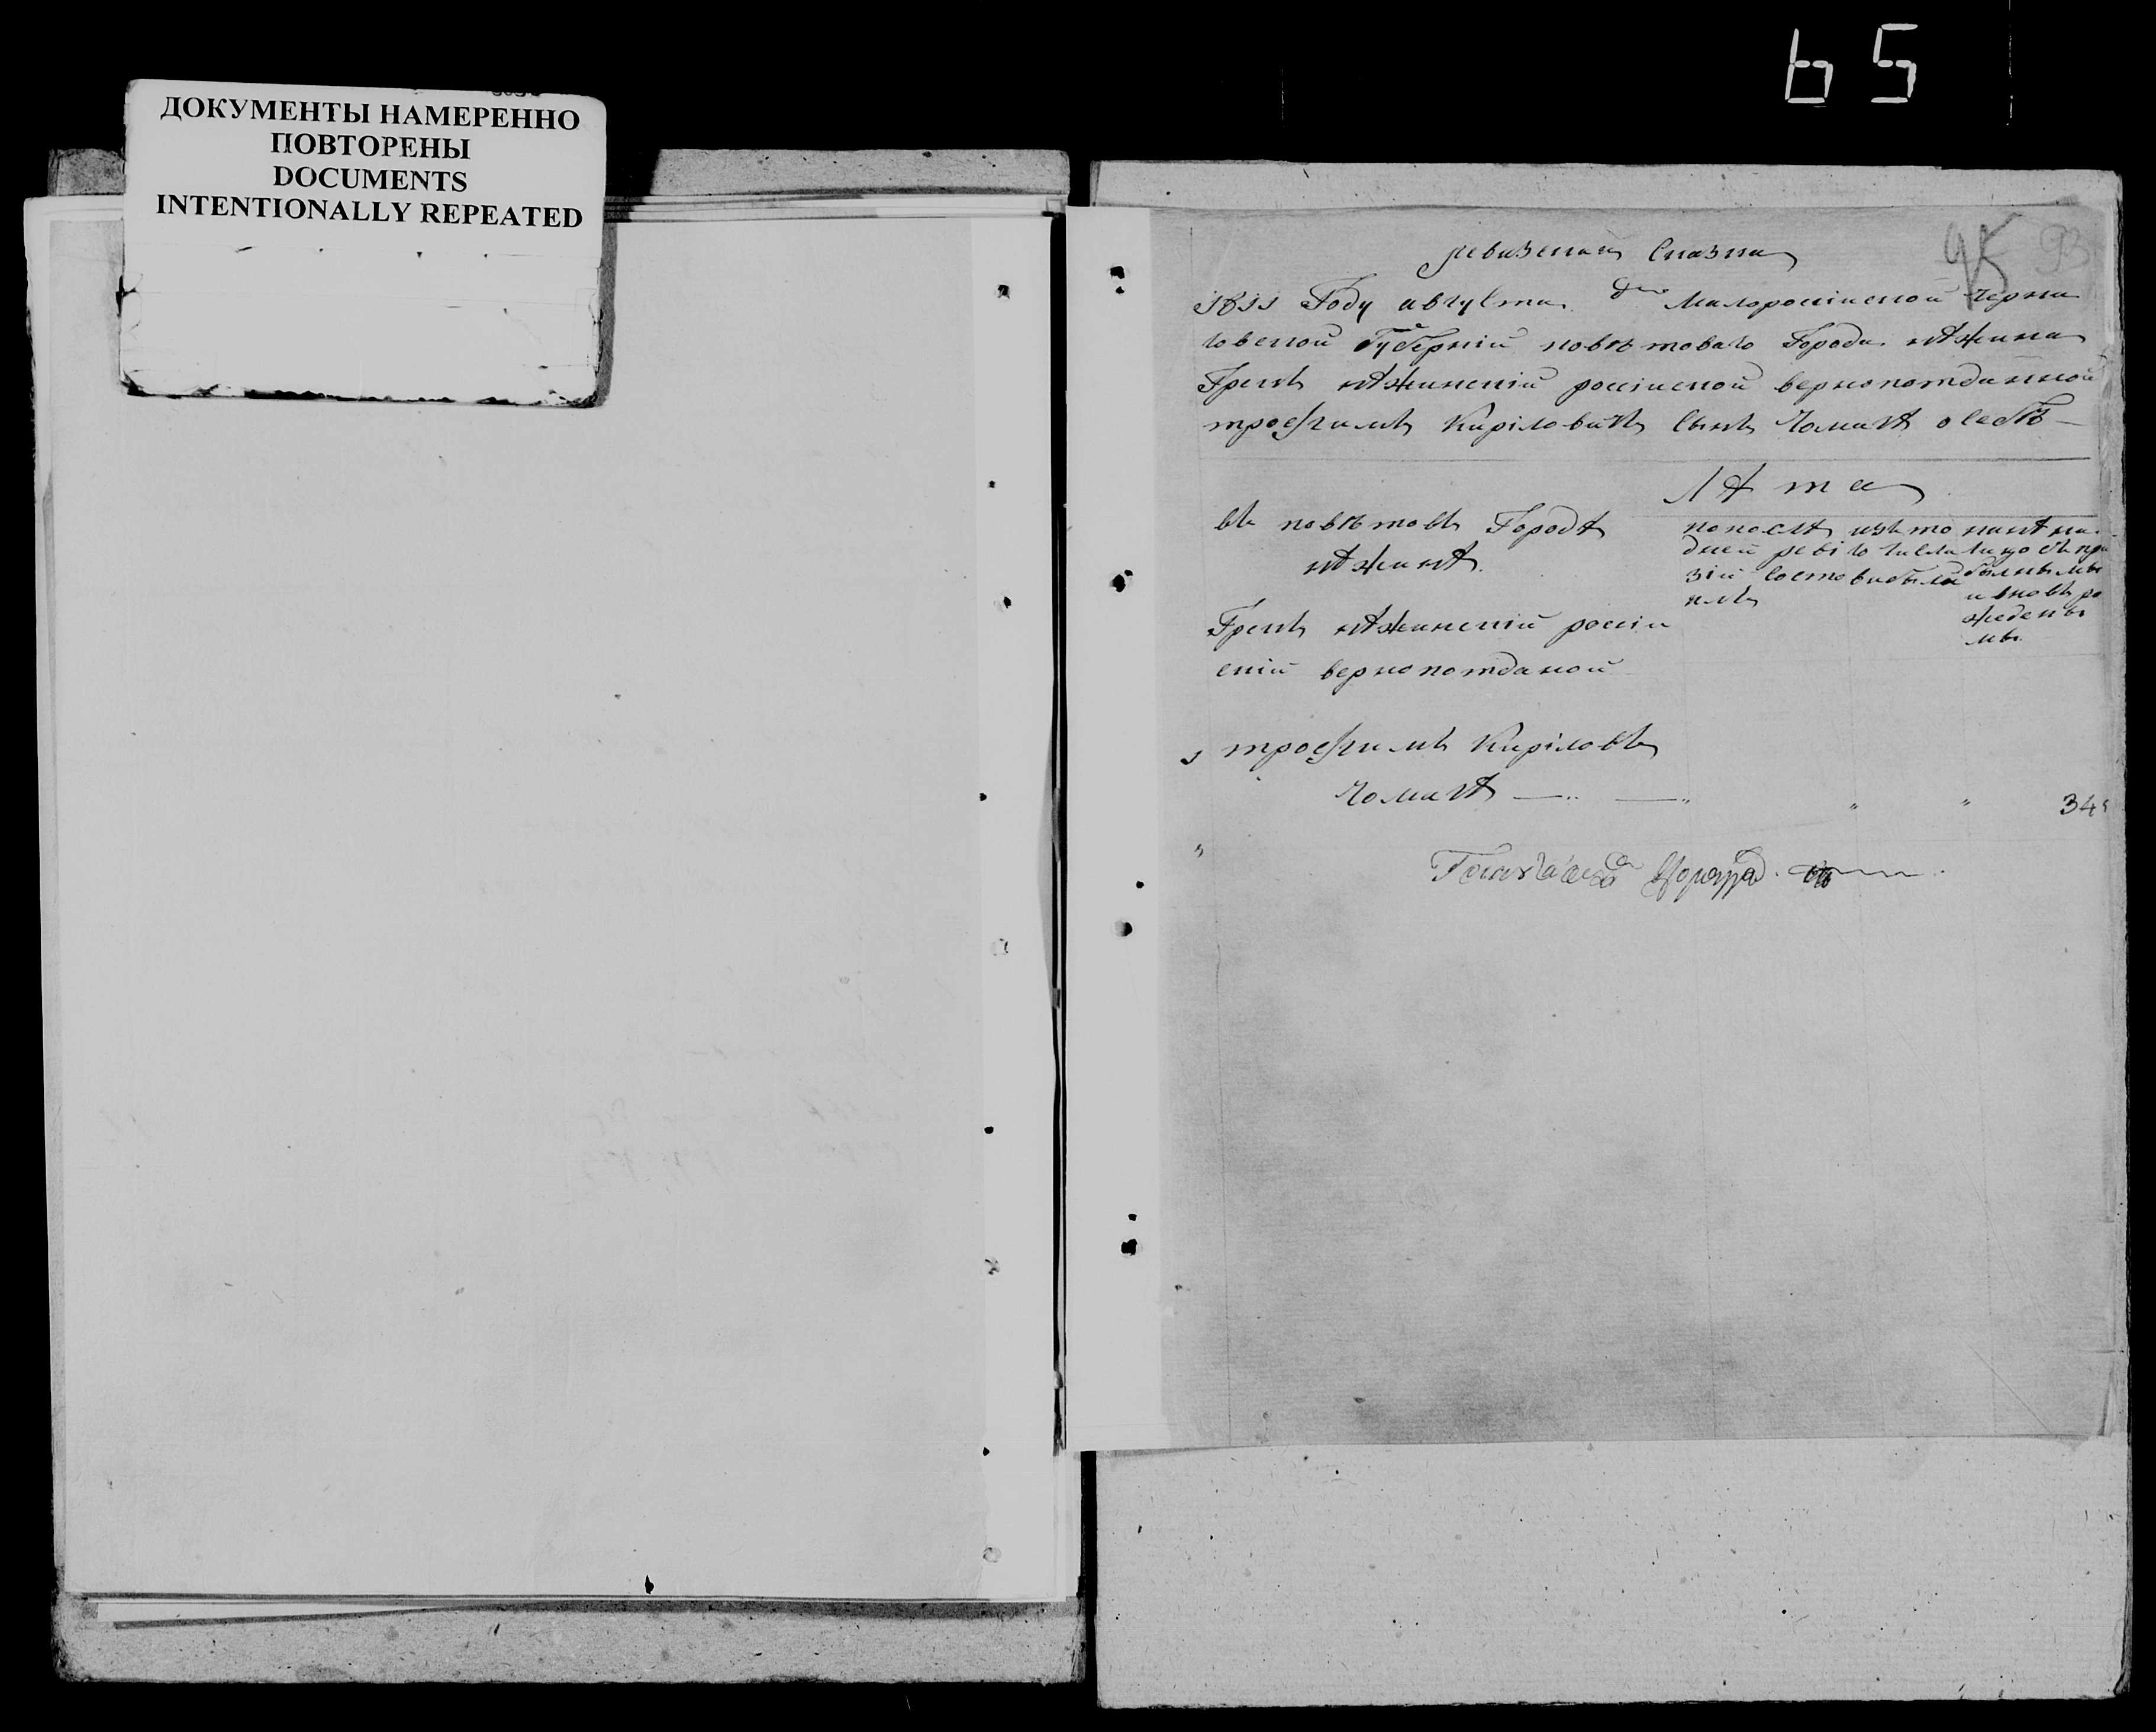 65
ДОКУМЕНТЫ НАМЕРЕННО
ПОВТОРЕНЫ
DOCUMENTS
INTENTIONALLY REPEATED
93
ревизская Сказка
1811 Году августа дня Малороссійской черни
говской Губерніи повѣтоваго Города нѣжина
Грекъ нѣжинскій россійской вернопотданной
трофимъ Кириловичъ сынъ о себѣ
Лѣта
въ повѣтовъ Городѣ
нѣжинѣ
по послѣ
дней реви
зіи состо
ялъ
изъ то
го числа
выбыли
нынѣ на
лицо съ при
былыми
и вновь ро
жденны
мы
Грекъ нѣжинскій россій
скій вернопотданой
1 трофимъ Кириловъ
34